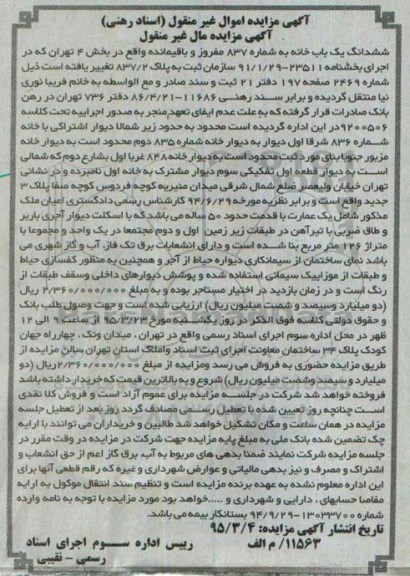 آگهی مزایده اموال غیر منقول (اسناد رهنی)
آگهی مزایده مال غیر منقول
ششدانگ یک باب خانه به شماره ۸۳۷ مفروز و باقیمانده واقع در بخش ۴ تهران که در
اجرای بخشنامه ۲۳۵۱۱-۹۱/۱/۲۹ سازمان ثبت به پلاک ۸۳۷/۲ تغییر یافته است ذیل
شماره ۲۴۶۹ صفحه ۱۹۷ دفتر ۲۱ ثبت و سند صادر و مع الواسطه به خانم فریبا نوری
نیا منتقل گردیده و برابر سند رهنی ۱۱۶۸۶-۸۶/۴/۲۱ دفتر ۷۳۶ تهران در رهن
بانک صادرات قرار گرفته که به علت عدم ایفای تعهد منجر به صدور اجراییه تحت کلاسه
۹۲۰۰۵۰۶ در این اداره گردیده است محدود به حدود زیر شمالا دیوار اشتراکی با خانه
شماره ۸۳۶ شرقا اول دیوار به دیوار خانه شماره ۸۳۵ دوم محدود است به دیوار خانه
مزبور جنوبا بنای مورد ثبت محدود است به دیوار خانه ۸۴۸ غربا اول بشارع دوم که شمالی
است به دیوار قطعه اول تفکیکی سوم دیوار مشترک به خانه اول نامبرده و در نشانی
تهران خیابان ولیعصر ضلع شمال شرقی میدان منیریه کوچه فردوس کوچه صفا پلاک ۳
جدید واقع است و برابر نظریه مورخه ۹۴/۶/۲۹ کارشناس رسمی دادگستری اعیان ملک
مذکور شامل یک عمارت با قدمت حدود ۵۰ ساله می باشد که با اسکلت دیوار آجری باربر
و طاق ضربی با تیرآهن در طبقات زیر زمین اول و دوم مجتمعا در یک واحد و مجموعا با
متراژ ۱۲۶ متر مربع بنا شده است و دارای انشعابات برق تک فاز، آب و گاز شهری می
باشد نمای ساختمان از سیمانکاری دیواره حیاط از آجر و همچنین به منظور کفسازی حیاط
و طبقات از موزاییک سیمانی استفاده شده و پوشش دیوارهای داخلی وسقف طبقات از
رنگ است و در زمان بازدید در اختیار مستاجر بوده و به مبلغ ۲/۳۶۰/۰۰۰/۰۰۰ ریال
(دو میلیارد وسیصد و شصت میلیون ریال) ارزیابی شده است و جهت وصول طلب بانک
و حقوق دولتی کلاسه فوق الذکر در روز یکشنبه مورخ ۹۵/۳/۲۳ از ساعت ۹ الی ۱۲
ظهر در محل اداره سوم اجرای اسناد رسمی واقع در تهران ، میدان ونک ، چهارراه جهان
کودک پلاک ۳۴ ساختمان معاونت اجرای ثبت اسناد واملاک استان تهران سالن مزایده از
طریق مزایده حضوری به فروش می رسد ومزایده از مبلغ ۲/۳۶۰/۰۰۰/۰۰۰ ریال (دو
میلیارد و سیصد وشصت میلیون ریال) شروع و به بالاترین قیمت که خریدار داشته باشد
فروخته خواهد شد شرکت در جلسه مزایده برای عموم آزاد است و فروش کلا نقدی
است چنانچه روز تعیین شده با تعطیل رسمی مصادف گردد روز بعد از تعطیل جلسه
مزایده در همان ساعت و مکان تشکیل خواهد شد طالبین و خریداران می توانند با ارایه
چک تضمین شده بانک ملی به مبلغ پایه مزایده جهت شرکت در مزایده در وقت مقرر در
جلسه مزایده شرکت نمایند ضمنا بدهی های مربوط به آب، برق گاز اعم از حق انشعاب و
اشتراک و مصرف و نیز بدهی مالیاتی و عوارض شهرداری و غیره که رقم قطعی آنها برای
این اداره معلوم نشده به عهده برنده مزایده است و تنظیم سند انتقال موکول به ارایه
مفاصا حسابهای ، دارایی و شهرداری و .....خواهد بود مورد مزایده با توجه به نامه وارده
شماره ۱۳۰۳۳۷۰۰-۹۴/۹/۲۹ بستانکار بیمه می باشد.
تاریخ انتشار آگهی مزایده: ۹۵/۳/۴
۱۱۵۶۳/م الف
رییس اداره سوم اجرای اسناد
رسمی - نقیبی